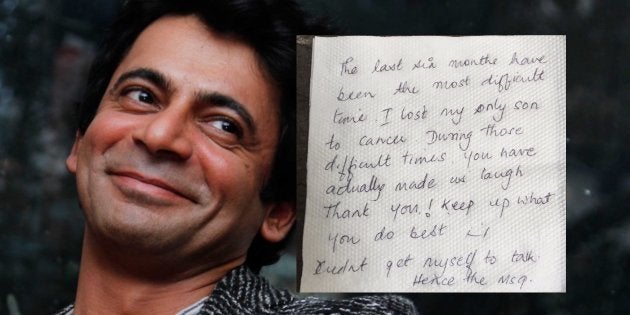 The last six months have
been the most difficult
time. I lost my only son
to cancer During those
difficult times you have
actually made us laugh
Thank you! Keep up what
you do best
Didnt get myself to talk.
Hence the msg.